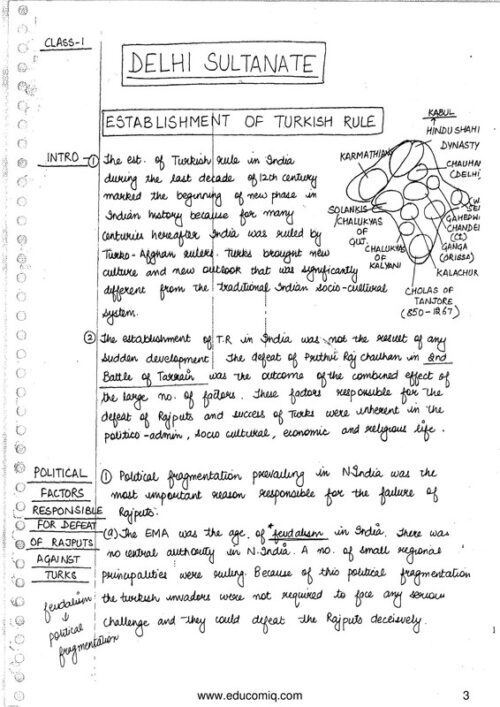 CLASS-1
DELHI SULTANATE
ESTABLISHMENT OF TURKISH RULE
INTRO - ① The est. of Turkish rule in India
during the last decade of 12th century
marked the beginning of new phase in
Indian history because for many
centuries hereafter India was ruled by
Turko-Afghan rulers. Turks brought new
culture and new outlook that was significantly
different from the traditional Indian socio-cultural
system.
KABUL
HINDUSHAHI
DYNASTY
KARMATHIANS
CHAUHAN
(DELHI)
SOLANKIS/
CHALUKYAS
OF
GUJ.
CHALUKYAS
OF
KALYANI
SE
GAHEDW
CHANDEL
(CI)
GANGA
(ORISSA)
KALACHUR
CHOLAS OF
TANJORE
(850-1267)
② The establishment of T.R in India was not the result of any
sudden development. The defeat of Prithvi Raj Chauhan in 2nd
Battle of Tarrain was the outcome of the combined effect of
the large no. of factors. These factors responsible for the
defeat of Rajputs and success of Turks were inherent in the
politico-admin, socio cultural, economic and religious life.
POLITICAL
FACTORS
RESPONSIBLE
FOR DEFEAT
OF RAJPUTS
AGAINST
TURKS
① Political fragmentation prevailing in N.India was the
most important reason responsible for the failure of
Rajputs.
(a) The EMA was the age of feudalism in India. There was
no central authority in N.India. A no. of small regional
principalities were ruling. Because of this political fragmentation
the turkish invaders were not required to face any serious
challenge and they could defeat the Rajputs decisively.
feudalism
↓
political
fragmentation
www.educomiq.com
3